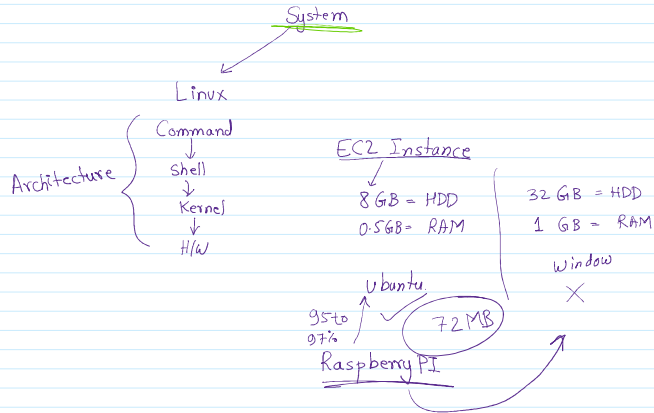 System
Linux
Architecture
Command
Shell
Kernel
H/W
EC2 Instance
8 GB = HDD
0.5GB= RAM
32 GB = HDD
1 GB = RAM
Window
X
Ubuntu.
95 to
97%
72 MB
Raspberry PI